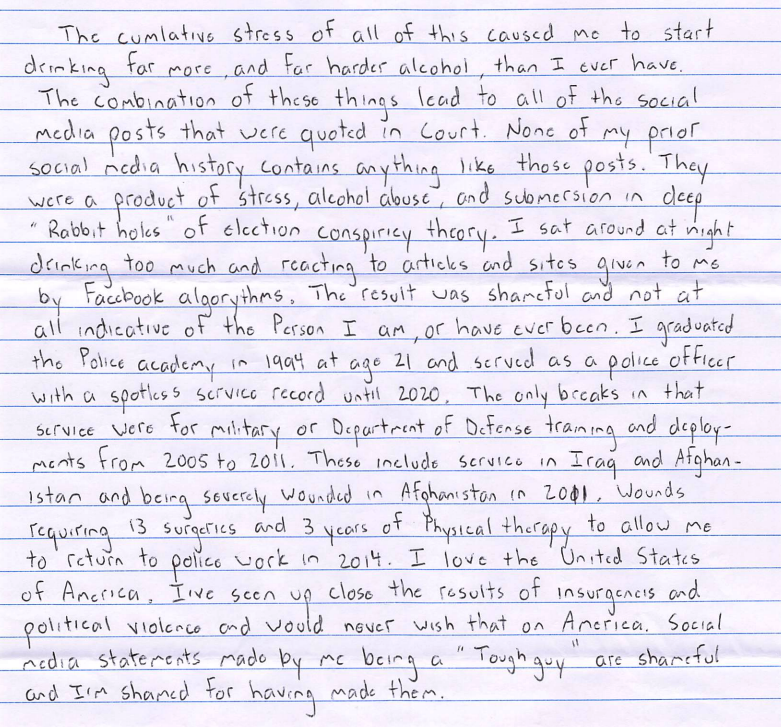 The cumlative stress of all of this caused me to start
drinking far more, and far harder alcohol, than I ever have.
The combination of these things lead to all of the social
media posts that were quoted in Court. None of my prior
social media history contains anything like those posts. They
were a product of stress, alcohol abuse, and submersion in deep
"Rabbit holes" of election conspiricy theory. I sat around at night
drinking too much and reacting to articles and sites given to me
by Facebook algorythms. The result was shameful and not at
all indicative of the Person I am, or have ever been. I graduated
the Police academy in 1994 at age 21 and served as a police officer
with a spotless service record until 2020. The only breaks in that
service were for military or Department of Defense training and deploy-
ments from 2005 to 2011. These include service in Iraq and Afghan-
istan and being severely wounded in Afghanistan in 2011. Wounds
requiring 13 surgeries and 3 years of Physical therapy to allow me
to return to police work in 2014. I love the United States
of America. I've seen up close the results of insurgencis and
political violence and would never wish that on America. Social
media statements made by me being a "Tough guy" are shameful
and I'm shamed for having made them.